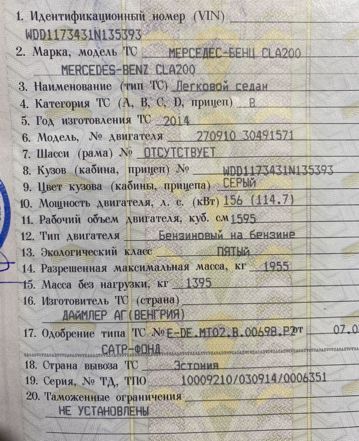 1. Идентификационный номер (VIN)
WDD1173431N135393
2. Марка, модель ТС МЕРСЕДЕС-БЕНЦ CLA200
MERCEDES-BENZ CLA200
3. Наименование (тип ТС) Легковой седан
4. Категория ТС (А, В, С, D, прицеп) В
5. Год изготовления ТС 2014
6. Модель, № двигателя 270910 30491571
7. Шасси (рама) № ОТСУТСТВУЕТ
8. Кузов (кабина, прицеп) № WDD1173431N135393
9. Цвет кузова (кабины, прицепа) СЕРЫЙ
10. Мощность двигателя, л. с. (кВт) 156 (114.7)
11. Рабочий объем двигателя, куб. см 1595
12. Тип двигателя Бензиновый на бензине
13. Экологический класс ПЯТЫЙ
14. Разрешенная максимальная масса, кг 1955
15. Масса без нагрузки, кг 1395
16. Изготовитель ТС (страна)
ДАЙМЛЕР АГ(ВЕНГРИЯ)
17. Одобрение типа ТС № E-DE.MT02.B.00698.P2 от 07.0
САТР-ФОНД
18. Страна вывоза ТС Эстония
19. Серия, № ТД, ТПО 10009210/030914/0006351
20. Таможенные ограничения
НЕ УСТАНОВЛЕНЫ